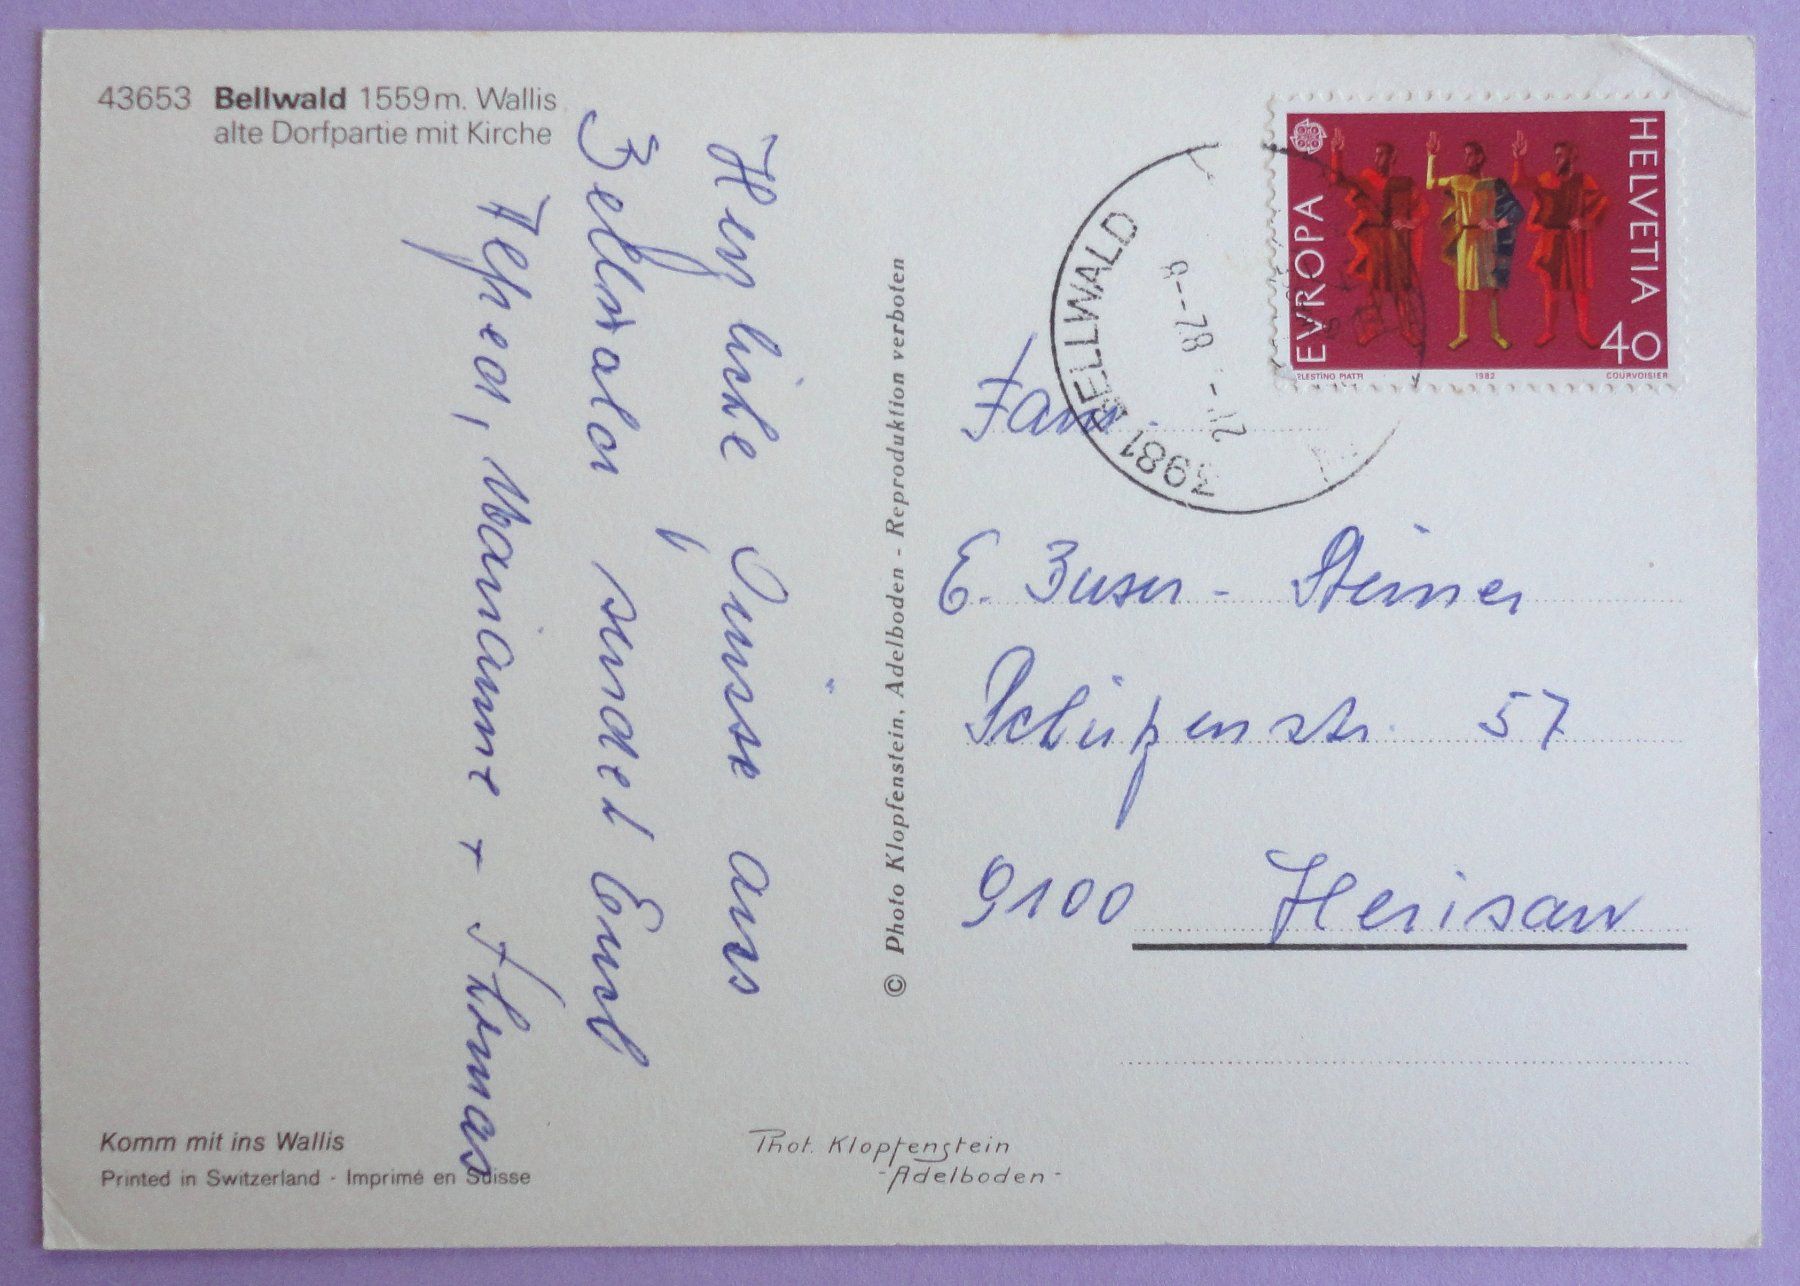 43653 Bellwald 1559 m. Wallis
alte Dorfpartie mit Kirche
Herzliche Grüsse aus
Bellwald sendet Euch
Alfred, Marianne + Thomas
© Photo Klopfenstein, Adelboden - Reproduktion verboten
HELVETIA
EVROPA
40
CELESTINO PIATTI 1982 COURVOISIER
3981 BELLWALD
Fam.
E. Buser-Steiner
Schützenstr. 57
9100 Herisau
Komm mit ins Wallis
Printed in Switzerland - Imprimé en Suisse
Phot. Klopfenstein
-Adelboden-